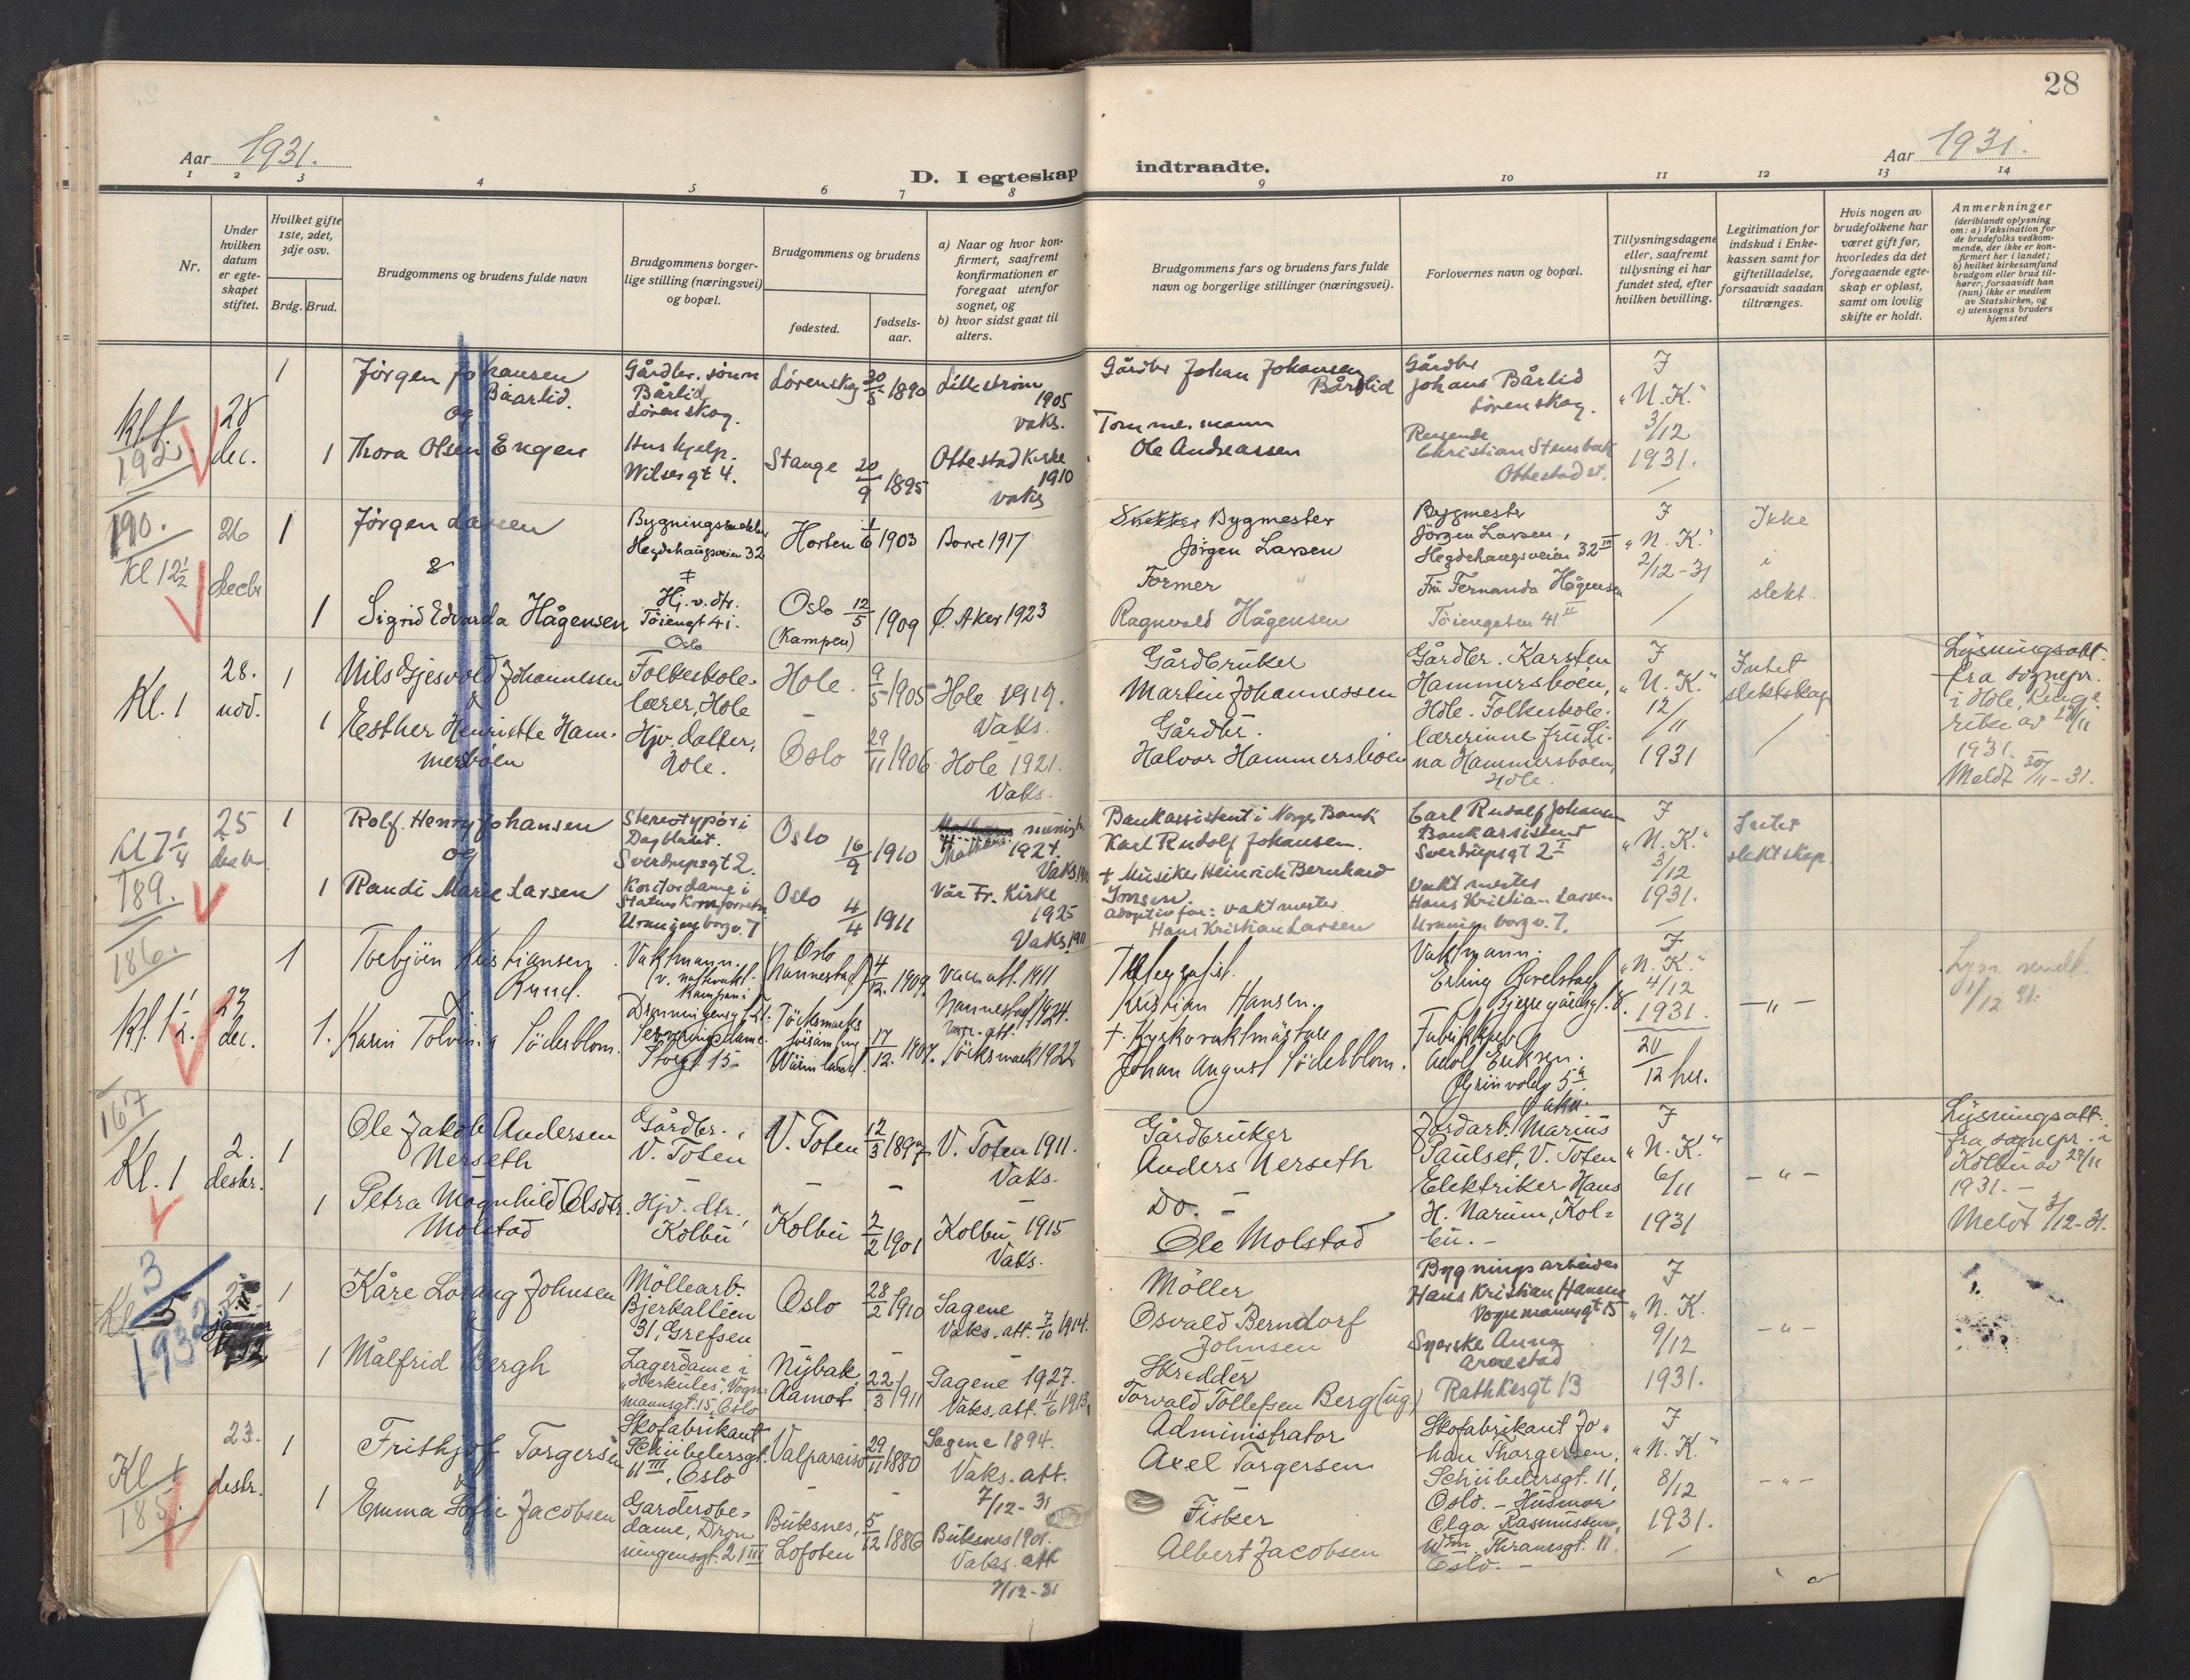 28
Aar 1931.
D. I egteskap indtraadte.
Aar 1931.
1 2 3 4 5 6 7 8 9 10 11 12 13 14
Nr.
Under hvilken datum er egte-skapet stiftet.
Hvilket gifte 1ste, 2det, 3dje osv.
Brdg. Brud.
Brudgommens og brudens fulde navn
Brudgommens borger-
lige stilling (næringsvei)
og bopæl.
Brudgommens og brudens
fødested.
fødsels-
aar.
a) Naar og hvor kon-
firmert, saafremt
konfirmationen er
foregaat utenfor
sognet, og
b) hvor sidst gaat til
alters.
Brudgommens fars og brudens fars fulde
navn og borgerlige stillinger (næringsvei).
Forlovernes navn og bopæl.
Tillysningsdagene
eller, saafremt
tillysning ei har
fundet sted, efter
hvilken bevilling.
Legitimation for
indskud i Enke-
kassen samt for
giftetilladelse,
forsaavidt saadan
tiltrænges.
Hvis nogen av
brudefolkene har
været gift før,
hvorledes da det
foregaaende egte-
skap er opløst,
samt om lovlig
skifte er holdt.
Anmerkninger
(deriblandt oplysning
om: a) Vaksination for
de brudefolks vedkom-
mende, der ikke er kon-
firmert her i landet;
b) hvilket kirkesamfund
brudgom eller brud til-
hører, forsaavidt han
(hun) ikke er medlem
av Statskirken, og
c) utensogns bruders
hjemsted
192
28
dec.
1
Jörgen Johansen
Baarlid.
og
1
Thora Olsen Engen
Gårdbr. sönn
Bårlid
Lørenskog.
Hushjelp.
Wilsesgt 4.
Lørenskog 20/5 1890
Stange 20/9 1895
Lilleström
1905
vaks.
Ottestad Kirke
1910
vaks
Gårdbr Johan Johansen
Bårlid
Tømmermann
Ole Andreassen
Gårdbr
Johans Bårlid
Lørenskog.
Reisende
Christian Stensbak
Ottestad st.
I
"N.K."
3/12
1931.
190.
Kl 12 1/2
26
decbr
1
Jörgen Larsen
&
1
Sigrid Edvarda Hågensen
Hegdehaugsveien 32
Hj.v.dtr.
Töiengt 41.
Oslo
Horten 1/6 1903
Oslo 12/5 1909
(Kampen)
Borre 1917
Ø. Aker 1923
Snekker Bygmester
Jörgen Larsen
Former
Ragnvald Hågensen
Bygmester
Jörgen Larsen,
Hegdehaugsveien 32 III
Fru Fernanda Hågensen
Töiengaten 41 II
I
"N.K."
2/12-31
Ikke
i
slekt.
Kl. 1
28.
nov.
1
Nils Gjesvold Johannessen
&
1
Esther Henriette Ham-
mersböen
Folkeskole-
lærer, Hole
Hjv. datter,
Hole.
Hole. 9/5 1905
Oslo 29/11 1906
Hole 1919.
Vaks.
Hole 1921.
Vaks.
Gårdbruker
Martin Johannessen
Gårdbr.
Halvor Hammersböen
Gårdbr. Karsten
Hammersböen,
Hole. Folkeskole-
lærerinne frk
na Hammersböen,
Hole.
I
"N.K."
12/
/11
1931
Intet
slektskap
Lysningsatt.
fra sognepr.
i Hole, Ringe
rike av 28/11
1931.
Meldt 30/11-31.
Kl 7 1/4
189.
25
desbr
1
Rolf. Henry Johansen
og
1
Randi Marie Larsen
Stereotypör i
Dagbladet.
Sverdrupsgt 2.
Kontordame i
Statens Kornforretn
Uranienborgv. 7
Oslo 16/9 1910
Oslo 4/4 1911
1924.
Vaks
Vår Fr. Kirke
1925
Vaks 1911
Bankassistent i Norges Bank
Karl Rudolf Johansen.
+ Musiker Heinrich Bernhard
Adoptivfar: vaktmester
Hans Kristian Larsen
Carl Rudolf Johansen
Bankassistent
Sverdrupsgt 2 I
Vaktmester
Hans Kristian Larsen
Uranienborgv. 7.
I
"N.K."
3/12
1931.
Intet
slektskap.
186.
Kl. 1 1/2.
23
dec.
1
Torbjörn Kristiansen
Ruud.
&
1.
Karin Tolvina Söderblom.
Vaktmann.
Dronningensgt 21.
Serveringsdame.
Storgt 15
Oslo
(Nannestad) 4/12. 1909.
Töcksmarks
församling
Wärmland. 17/12. 1907.
Vacc. att. 1911
Nannestad 1924.
Vacc. att.
Töcksmark 1922
Telegrafist.
Kristian Hansen.
+ Kyrkovaktmästare
Johan August Söderblom.
Vaktmann.
Erling
Fabrikkarb
Adolf Eriksen.
Grünvoldv 5 a.
Aker.
I
"N.K."
4/12
1931.
20/12 her.
— " —
Lysn. meldt.
1/12 31.
167
Kl. 1
2.
desbr.
1
Ole Jakob Andersen
Nerseth
1
Petra Magnhild Olsdtr.
Molstad
Gårdbr.,
V. Toten
Hjv. dtr.,
Kolbu
V. Toten 12/3 1897
Kolbu 2/2 1901
V. Toten 1911.
Vaks.
Kolbu 1915
Vaks.
Gårdbruker
Anders Nerseth
Do. —
Ole Molstad
Jordarb. Marius
Paulset, V. Toten
Elektriker Hans
H. Narum, Kol-
bu. —
I
"N.K."
6/11
1931
— " —
Lysningsatt.
fra sognepr. i
Kolbu av 29/11
1931. —
Meldt 3/12-31.
Kl 5
3
1932
2.
januar
1932
1
Kåre Lorang Johnsen
&
1
Målfrid Bergh
Möllearb.
Bjerkalleen
31, Grefsen
Lagerdame i
"Herkules", Vogn-
mannsgt. 15, Oslo
Oslo 28/2 1910
Nybak
Aamot 22/3 1911
Sagene
Vaks. att. 7/10 1914.
Sagene 1927.
Vaks. att. 11/6 1913.
Möller
Osvald Berndorf
Johnsen
Skredder
Torvald Tollefsen Berg (ug.)
Bygningsarbeider
Hans Kristian Hansen
Vognmannsgt 15
Syerske Anna
Arnestad
Rathkesgt 13
I
"N.K.
9/12
1931.
— " —
Kl 1
185.
23.
desbr.
1
Frithjof Torgersen
&
1
Emma Sofie Jacobsen
Skofabrikant
Schübelersgt.
11 III, Oslo
Garderobe-
dame, Dron
ningensgt. 21 III
Valparaiso 29/11 1880
Buksnes,
Lofoten 5/12 1886
Sagene 1894.
Vaks. att.
7/12-31
Buksnes 1901.
Vaks. att
7/12-31
Administrator
Axel Torgersen
Fisker
Albert Jacobsen
Skofabrikant Jo-
han Thorgersen,
Schübelersgt. 11,
Oslo. — Husmor
Olga Rasmussen,
Wm. Thranesgt. 11.
Oslo. —
I
"N.K."
8/12
1931.
— " —